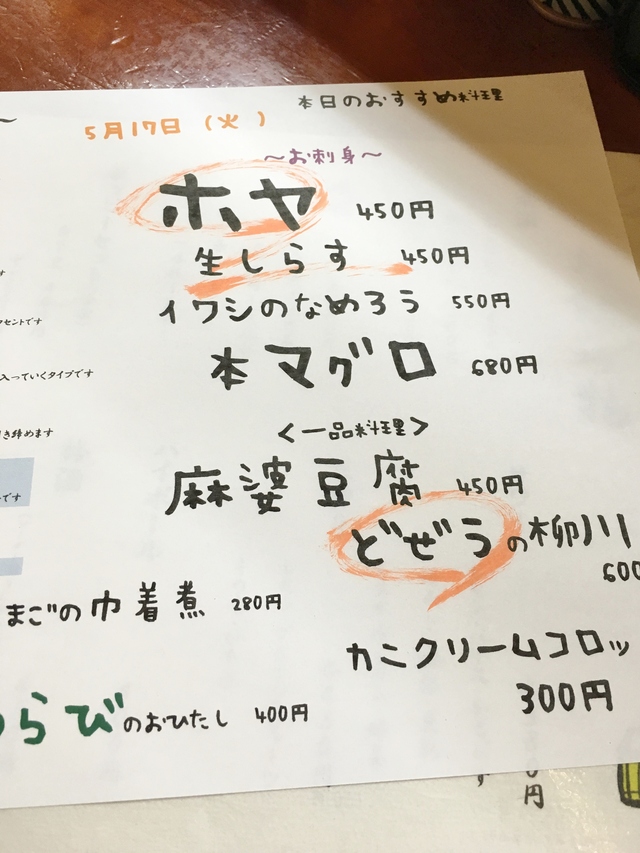 本日のおすすめ料理
5月17日（火）
～お刺身～
ホヤ 450円
生しらす 450円
イワシのなめろう 550円
本マグロ 680円
<一品料理>
麻婆豆腐 450円
どぜうの柳川
600
まごの巾着煮 280円
カニクリームコロッ
300円
らびのおひたし 400円
クセントです
入っていくタイプです
き締めます
です
円